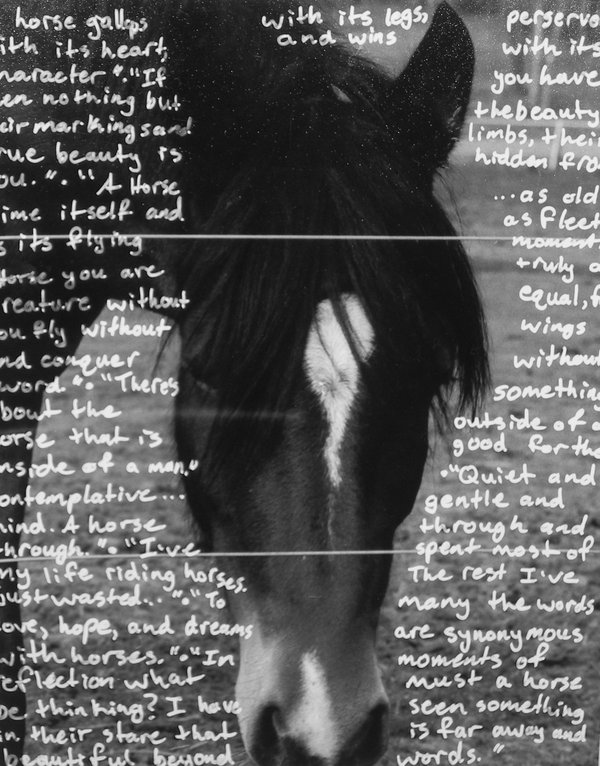 horse gallops with its legs, perserve
ith its heart, and wins with its
haracter". "If you have
en nothing but the beauty
eir markings and limbs, their
rue beauty is hidden fro
ou.". "A Horse ...as old
ime itself and as fleet
s its flying moment.
Horse you are truly a
reature without equal, f
ou fly without wings
nd conquer without
word.". "There's something
bout the outside of a
orse that is good for the
nside of a man."
."Quiet and
ontemplative... gentle and
ind. A horse through and
hrough.". "I've spent most of
my life riding horses. The rest I've
just wasted...". "To many the words
ove, hope, and dreams are synonymous
with horses.". "In moments of
eflection what must a horse
be thinking? I have seen something
in their stare that is far away and
beautiful beyond words."